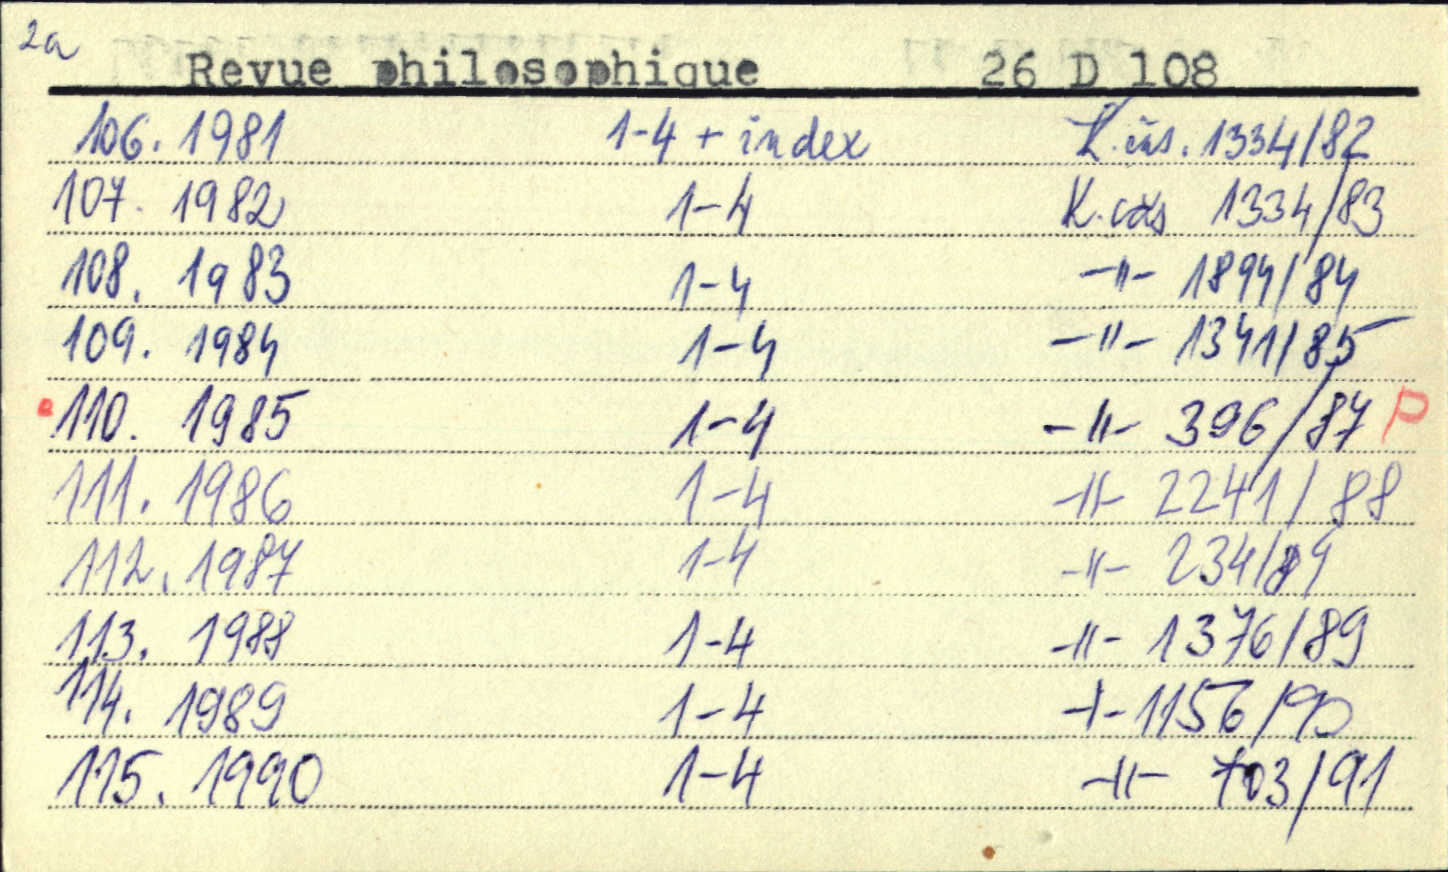 2a
Revue philosophique 26 D 108
106. 1981 1-4 + index K. čás. 1334/82
107. 1982 1-4 K. čás 1334/83
108. 1983 1-4 -"- 1894/84
109. 1984 1-4 -"- 1341/85
110. 1985 1-4 -"- 396/87 P
111. 1986 1-4 -"- 2241/88
112. 1987 1-4 -"- 234/89
113. 1988 1-4 -"- 1376/89
114. 1989 1-4 -"- 1156/90
115. 1990 1-4 -"- 703/91